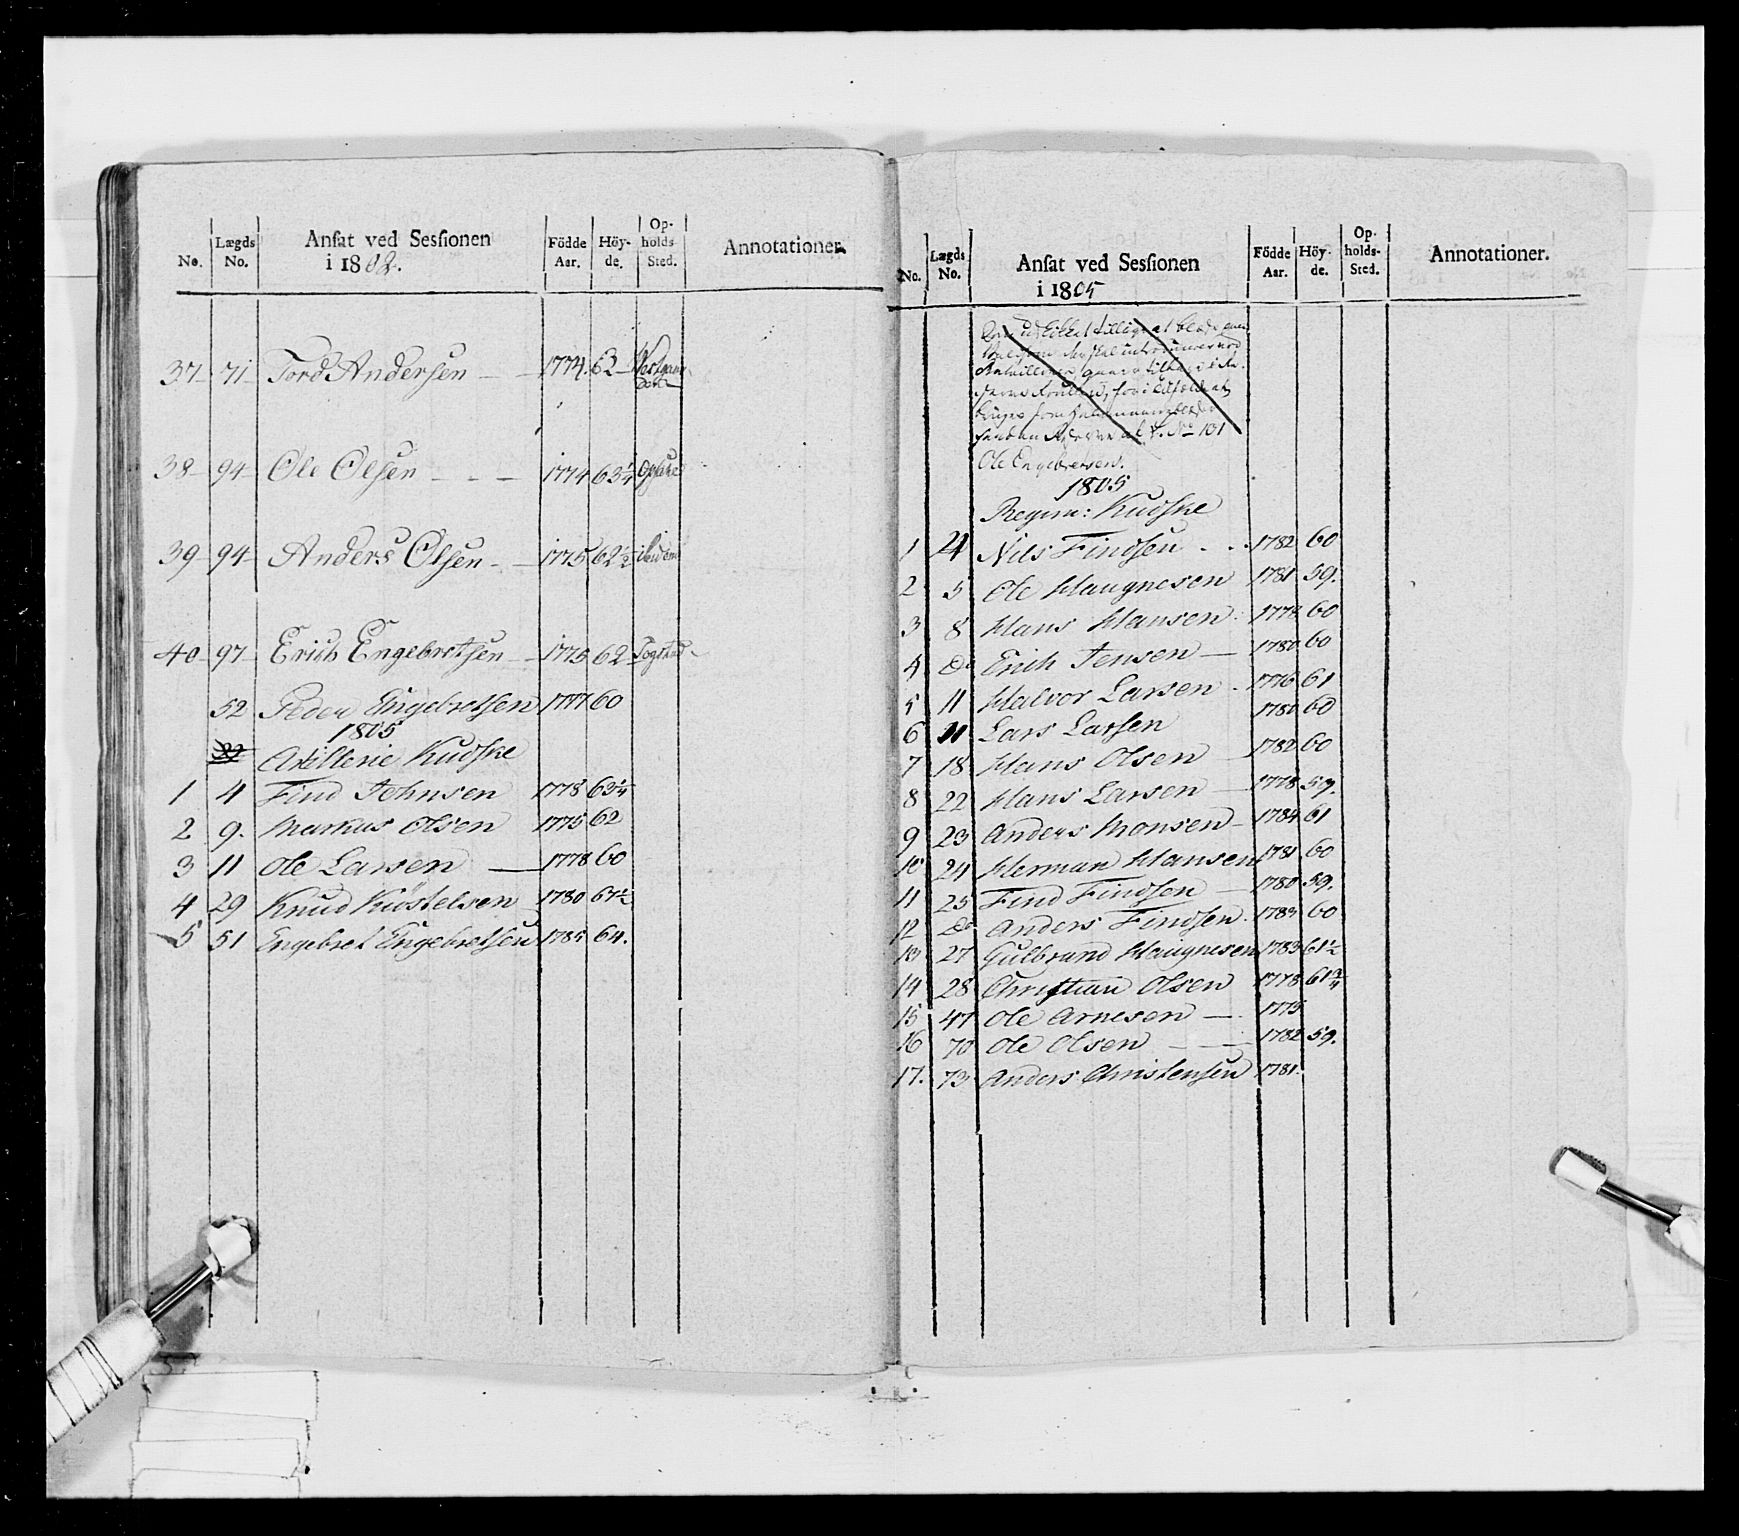 No. Lægds No. Ansat ved Sessionen i 1802. Födde Aar. Höyde. Opholds Sted. Annotationer.
37 71 Tord Andersen 1774. 62
38 94 Ole Olsen 1774 63¼
39 94 Anders Olsen 1775 62½
40 97 Erich Engebretsen 1775 62 Togstad
52 Peder Engebretsen 1777 60
1805
Artillerie Kudske
1 4 Find Johnsen 1778 63¼
2 9. Markus Olsen 1775 62
3 11 Ole Larsen 1778 60
4 29 Knud Kiöstelsen 1780 61½
5 51 Engebret Engebretsen 1785 64.
No. Lægds No. Ansat ved Sessionen i 1805 Födde Aar. Höyde. Opholds-Sted. Annotationer.
No 101
Ole Engebretsen.
1805
Regim: Kudske
1 4 Nils Findsen 1782 60
2 5 Ole Haugnesen 1781 59.
3 8 Hans Hansen 1778 60
4 Do Erich Jensen 1780 60
5 11 Halvor Larsen 1776 61
6 11 Lars Larsen 1780 60
7 18 Hans Olsen 1782 60
8 22 Hans Larsen 1778 59.
9 23 Anders Monsen 1784 61
10 24 Herman Hansen 1781 60
11 25 Find Findsen 1780 59.
12 Do Anders Findsen 1784 60
13 27 Gulbrand Haugnesen 1783 61½
14 28 Christian Olsen 1778 61¾
15 47 Ole Arnesen 1775
16 70 Ole Olsen 1782 59.
17. 73 Anders Christensen 1781.